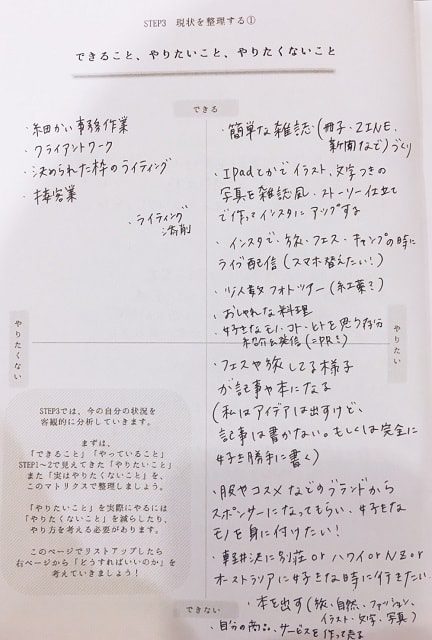 STEP3 現状を整理する①
できること、やりたいこと、やりたくないこと
できる
・細かい事務作業
・クライアントワーク
・決められた枠のライティング
・接客業
・ライティング
添削
・簡単な雑誌(冊子・ZINE、
新聞など)づくり
・IPadとかでイラスト、文字つきの
写真を雑誌風・ストーリー仕立て
で作ってインスタにアップする
・インスタで、旅・フェス・キャンプの時に
ライブ配信(スマホ替えたい!)
・少人数フォトツアー(紅葉?)
・おしゃれな料理
・好きなモノ・コト・ヒトを思う存分
紹介&発信(=PR?)
やりたくない
やりたい
・フェスや旅してる様子
が記事や本になる
(私はアイデアは出すけど、
記事は書かない。もしくは完全に
好き勝手に書く)
・服やコスメなどのブランドから
スポンサーになってもらい、好きな
モノを身に付けたい!
・軽井沢に別荘orハワイorNZor
オーストラリアに好きな時に行きたい
・本を出す(旅、自然、ファッション、
イラスト・文字、写真)
・自分の商品、サービスを
作って売る
STEP3では、今の自分の状況を
客観的に分析していきます。
まずは、
「できること」「やっていること」
STEP1〜2で見えてきた「やりたいこと」
また「実はやりたくないこと」を、
このマトリクスで整理しましょう。
「やりたいこと」を実際にやるには
「やりたくないこと」を減らしたり、
やり方を考える必要があります。
このページでリストアップしたら
右ページから「どうすればいいのか」を
考えていきましょう!
できない